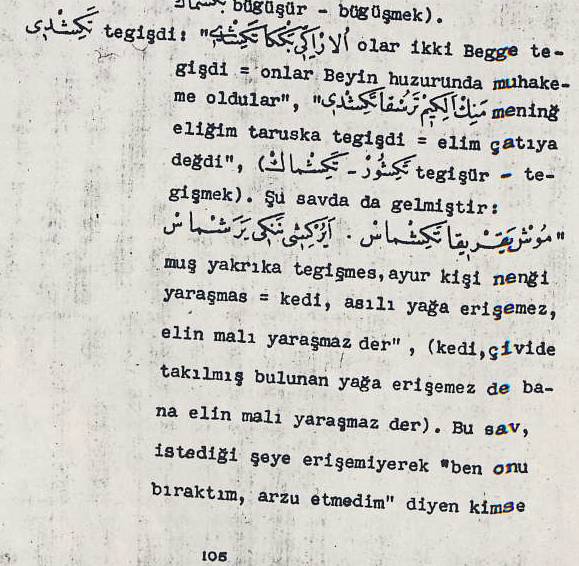 بكشماك bügüşür - bügüşmek).
تكشدى tegişdi: "ألار اكى بككا تكشدى olar ikki Begge te-
gişdi = onlar Beyin huzurunda muhake-
me oldular", "مننك الكيم ترسقا تكشدى mening
eliğim taruska tegişdi = elim çatıya
değdi", (تكشور - تكشماك tegişür - te-
gişmek). Şu savda da gelmiştir:
"موش يقريقا تكشماس . أير كشى ننكى يرشماس
muş yakrıka tegişmes, ayur kişi nengi
yaraşmas = kedi, asılı yağa erişemez,
elin malı yaraşmaz der", (kedi, çivide
takılmış bulunan yağa erişemez de ba-
na elin malı yaraşmaz der). Bu sav,
istediği şeye erişemiyerek "ben onu
bıraktım, arzu etmedim" diyen kimse
105